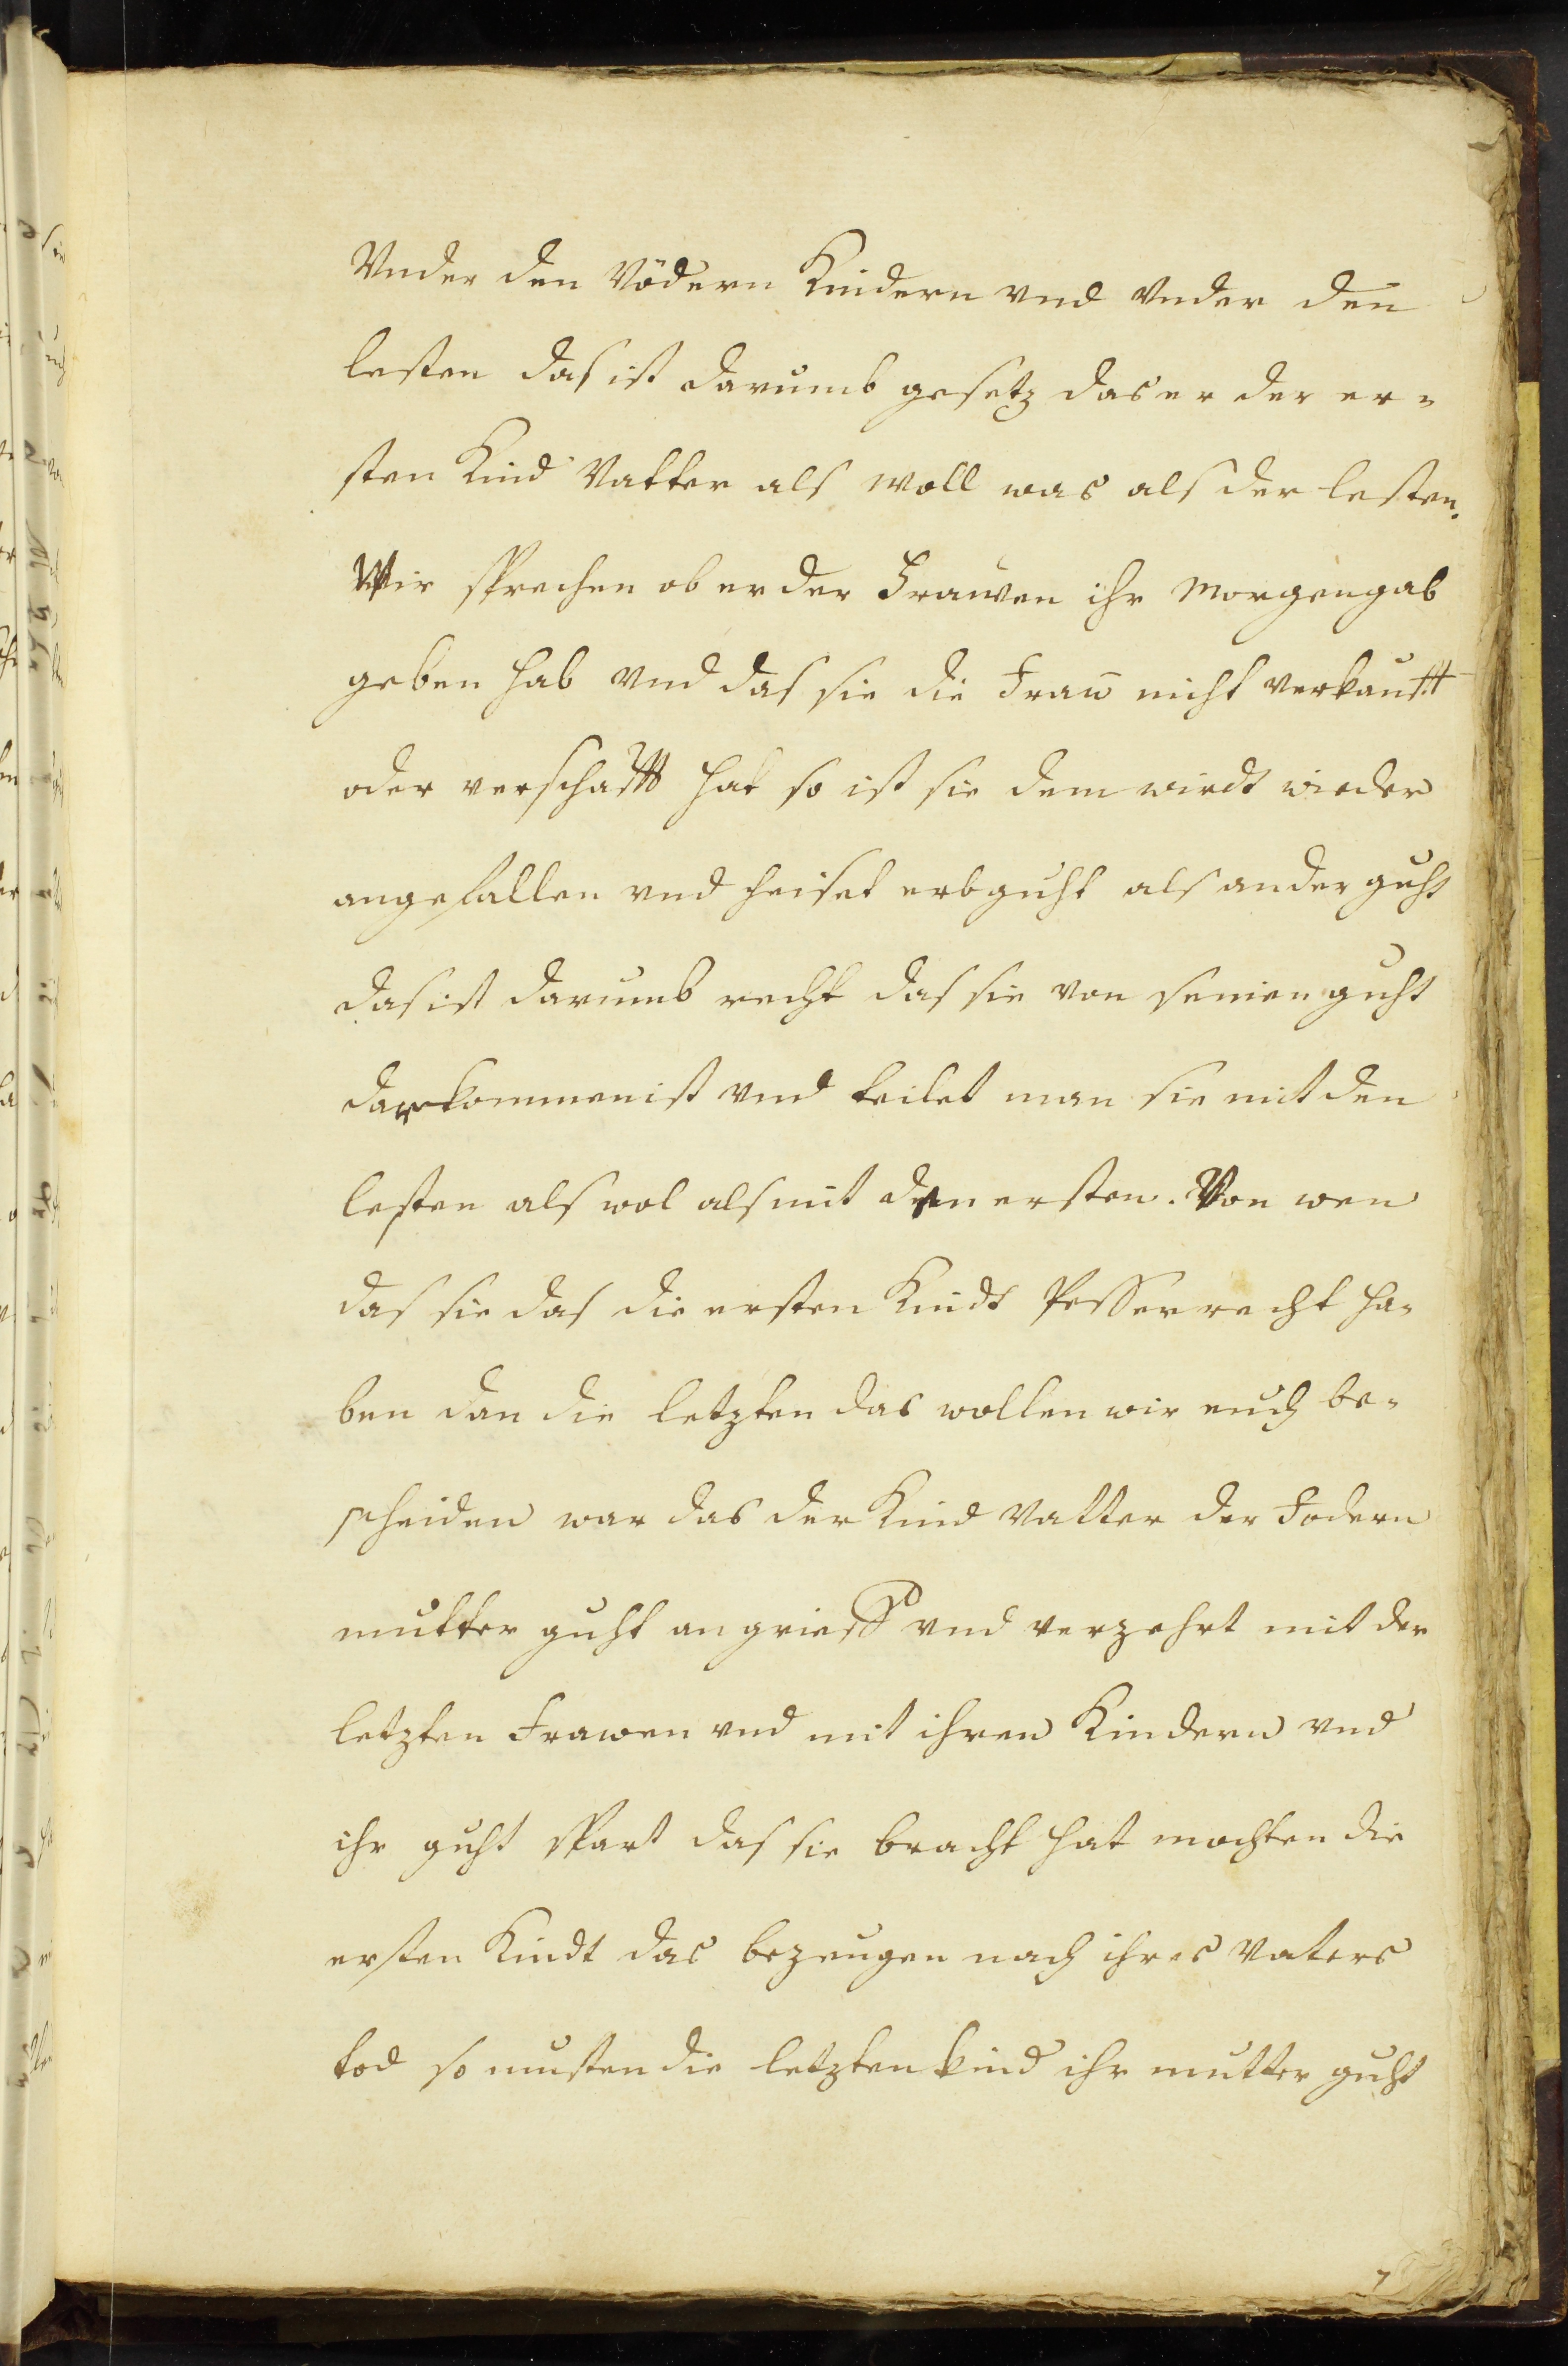 Vnder den Vödern Kindern vnd vnder den
lesten das ist darumb gesetz das er der er-
sten Kind Vatter als woll was als der lesten.
Wir sprechen ob er der Frawen ihr Morgengab
geben hab vnd das sie die Fraw nicht verkaufft
oder verschafft hat so ist sie dem wirdt wieder
angefallen vnd heiset erbguht als ander guht
das ist darumb recht das sie von seinen guht
darkommen ist vnd teilet man sie mit den
lesten als wol als mit den ersten. Von wen
das sie das die ersten Kindt Pesser recht ha-
ben dan die letzten das wollen wir euch be-
scheiden war das der Kind Vatter der Fodern
mutter guht angrieff vnd verzehrt mit der
letzten Frawen vnd mit ihren Kindern vnd
ihr guht spart das sie bracht hat mochten die
ersten Kindt das bezeugen nach ihres Vaters
tod so musten die letzten kind ihr mutter guht